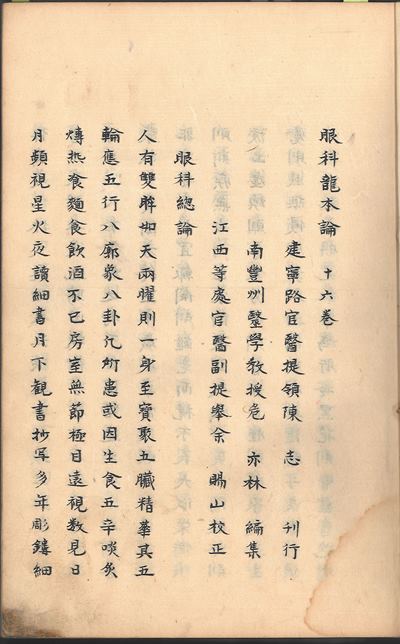 眼科龍本論 十六巻
建寧路官醫提領陳志刊行
南豐州醫學教授危亦林編集
江西等處官醫副提舉余賜山校正
眼科總論
人有雙眸如天兩曜則一身至寶聚五臟精華其五
輪應五行八廓象八卦凢所患或因生食五辛啖炙
煿熱飡麵食飲酒不已房室無節極目遠視數見日
月頻視星火夜讀細書月下觀書抄写多年彫鏤細